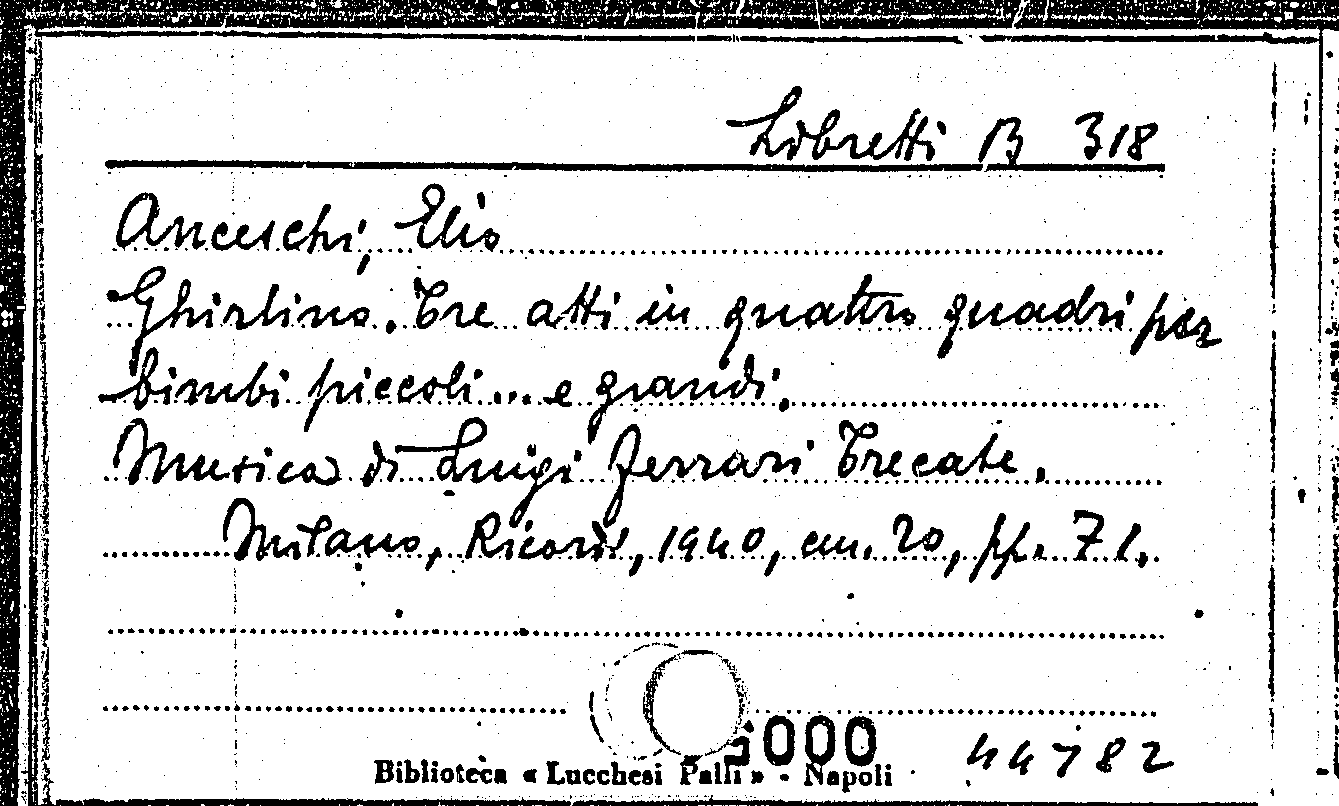 Libretti B 318
Anceschi, Elio
Ghirlino. Tre atti in quattro quadri per
bimbi piccoli... e grandi.
Musica di Luigi Ferrari Trecate.
Milano, Ricordi, 1940, cm. 20, pp. 71.
000
44782
Biblioteca « Lucchesi Palli » - Napoli